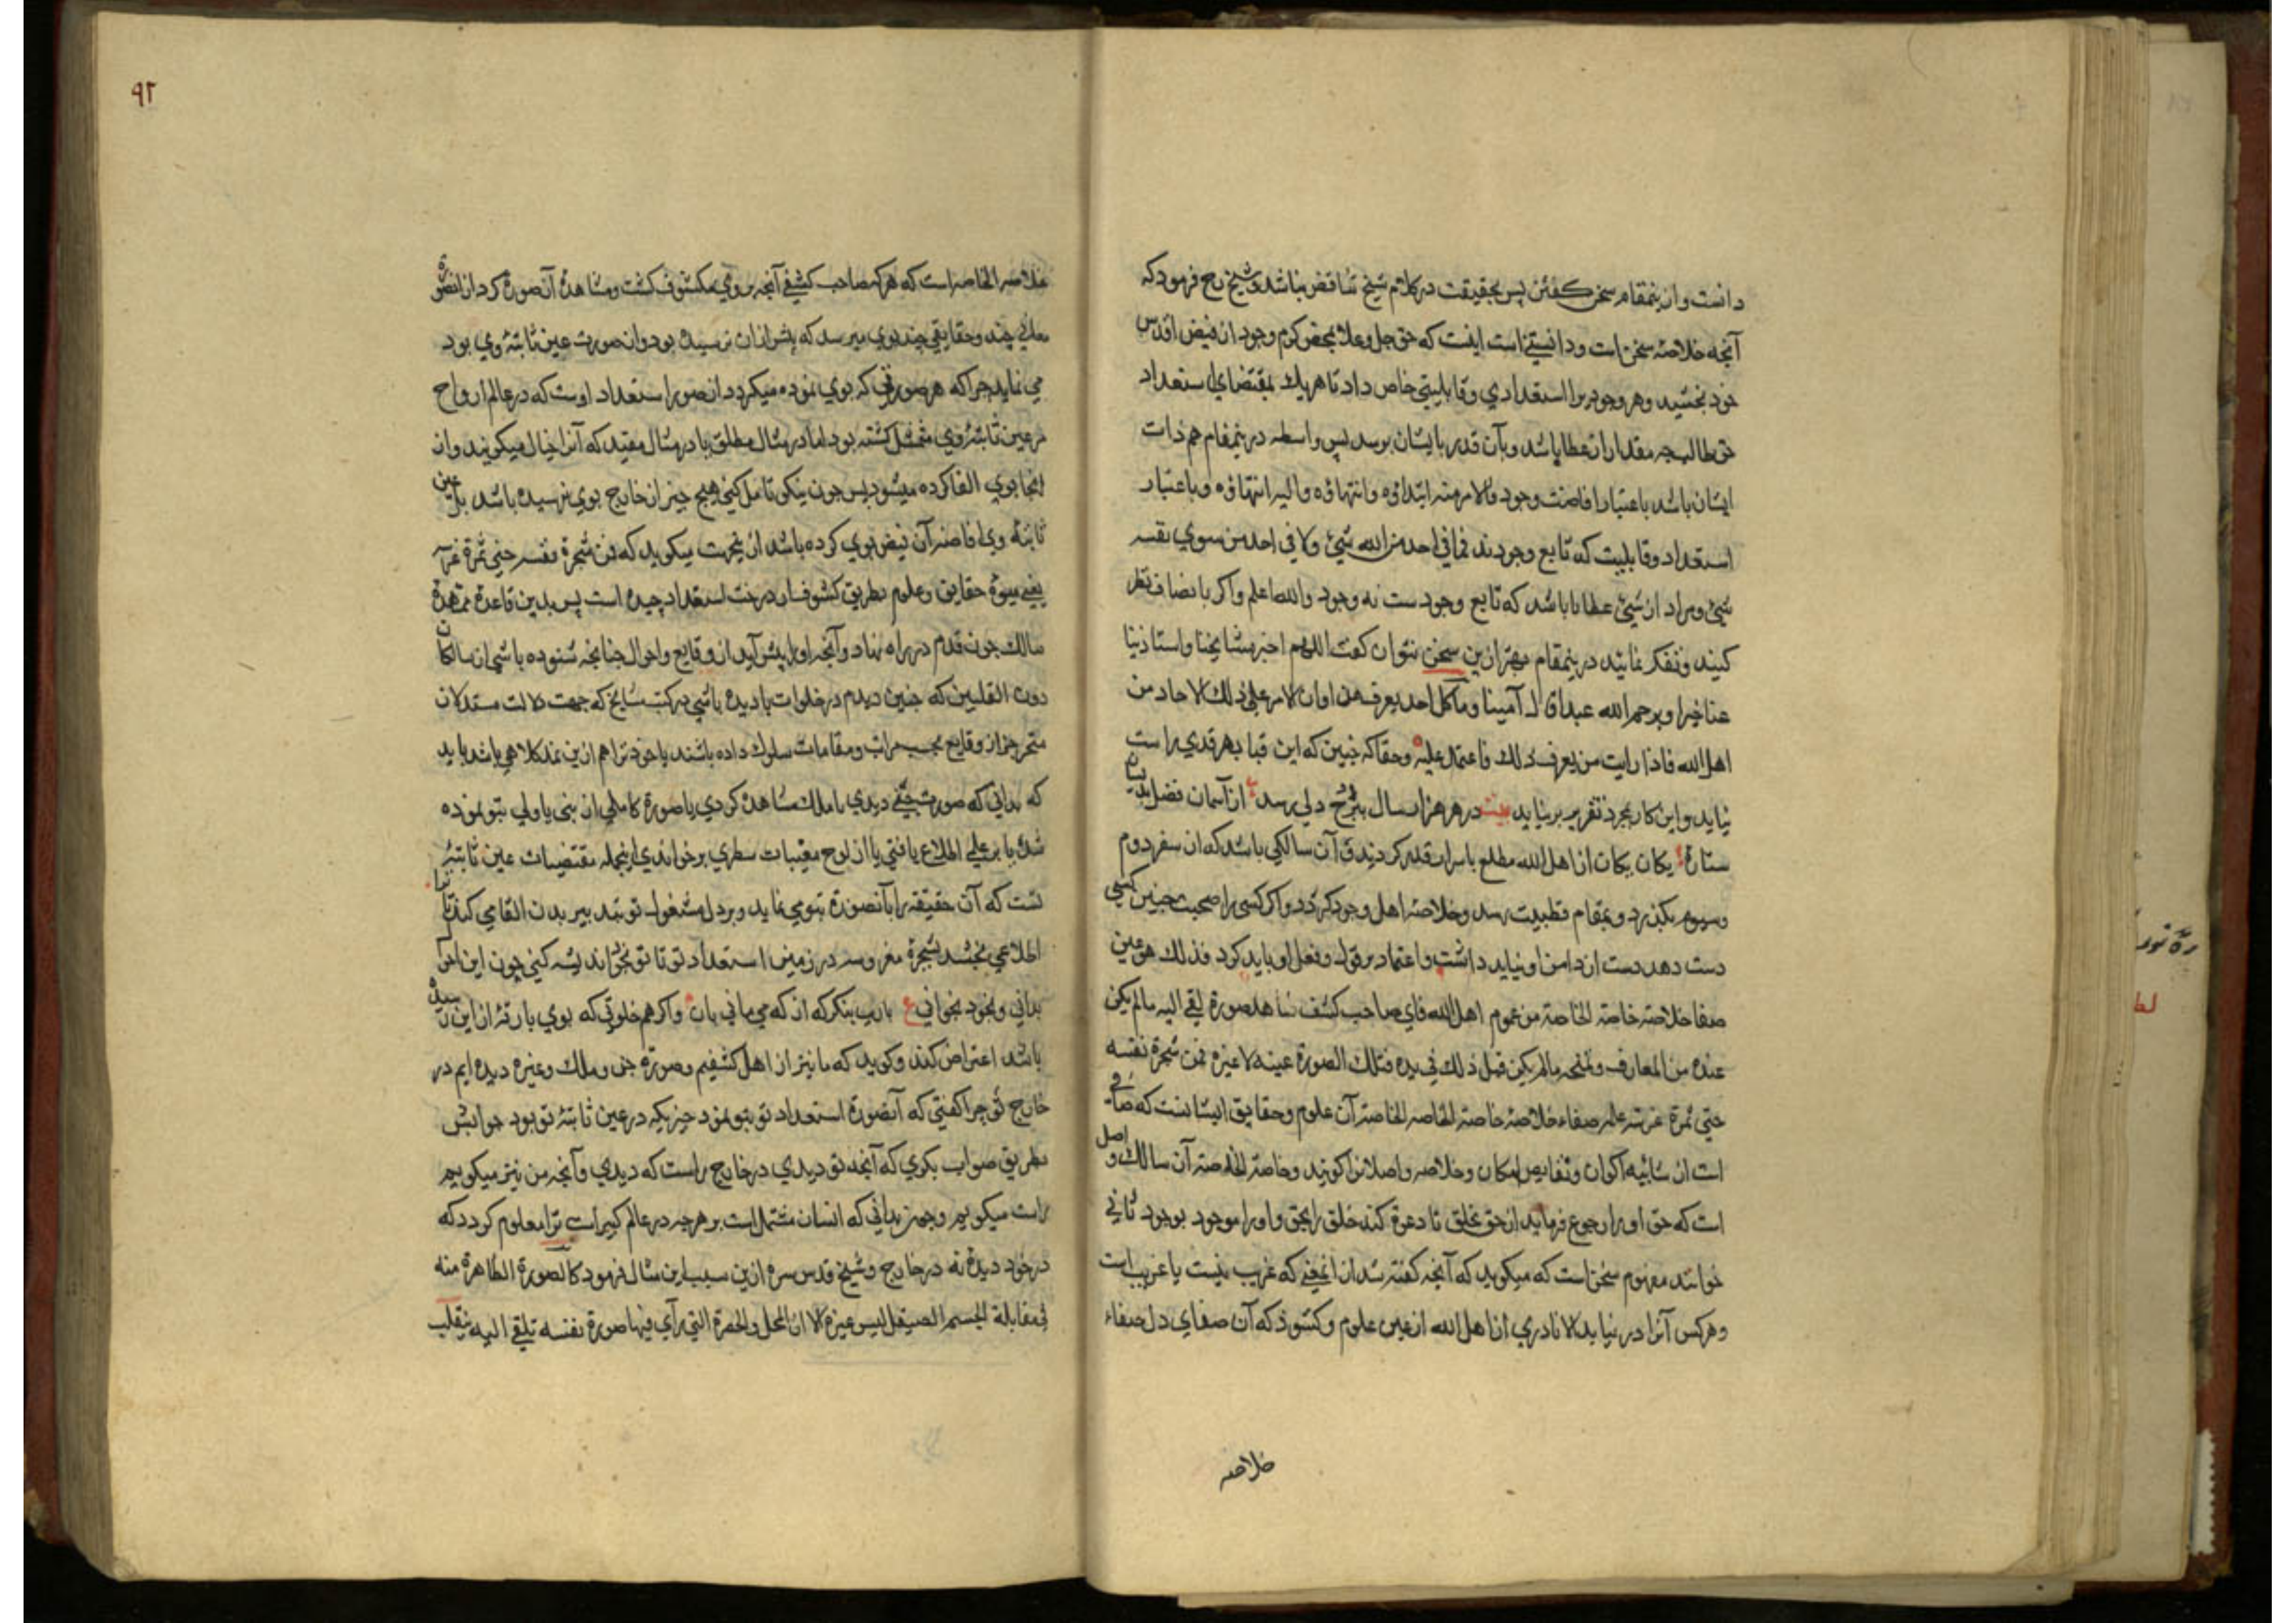 دانست وازینمقام سخن کفتن پس بحقیقت در کلام شیخ تناقض نباشد وشیخ رح فرمود که
آنچه خلاصهٔ سخن است ودانستنی است اینست که حق جل وعلا بمحض کرم وجود از فیض اقدس
خود بخشید وهر وجودیرا استعدادی وقابلیتی خاص داد تا هر یک بمقتضای استعداد
خود طالب چه مقدار از عطا باشد وبآن قدر بایشان برسد پس واسطه درینمقام هم ذات
ایشان باشد باعتبار افاضت وجود والامر منه ابتداؤه وانتهاؤه والیه انتهاؤه وباعتبار
استعداد وقابلیت که تابع وجودند فما فی احد من الله شیئ ولا فی احد من سوی نفسه
شیئ ومراد از شیئ عطایا باشد که تابع وجودست نه وجود والله اعلم واکر بانصاف نظر
کنند وتفکر نمایند درینمقام بهتر ازین سخن نتوان کفت اللهم اجز مشایخنا واستاذینا
عنا خیرا ویرحم الله عبدا قال آمینا وما کل احد یعرف هذا وان الامر علی ذلک الا احاد من
اهل الله فاذا رایت من یعرف ذلک فاعتمد علیه وحقا که چنین که این قبا بهر قدی راست
نیاید واین کار بمجرد تقریر بر نیاید بیت در هر هزار سال ببرج دلی رسد از آسمان فضل بدینسان
ستارهٔ یکان یکان از اهل الله مطلع باسرار قدر کردند وآن سالکی باشد که از سفر دوم
وسیوم بکذرد وبمقام قطبیت رسد وخلاصهٔ اهل وجود کردد واکر کسی را صحبت چنین کسی
دست دهد دست از دامن او نباید داشت واعتماد بر قول وفعل او باید کرد فذلک هو عین
صفا خلاصة خاصة الخاصة من عموم اهل الله فای صاحب کشف شاهد صورة تلقی الیه مالم یکن
عنده من المعارف وتمنحه مالم یکن قبل ذلک فی یده فتلک الصورة عینه لا غیره فمن شجرة نفسه
جنی ثمرة غرسه علم صفاء خلاصهٔ خاصة الخاصه الخاصة آن علوم وحقایق ایشانست که صافی
است از شایبهٔ اکوان ونقایص امکان وخلاصه واصلانرا کویند وخاصة الخلاصة آن سالک واصل
است که حق او را رجوع فرماید از حق بخلق تا دعوة کند خلق را بحق واو را موجود بوجود ثانی
خوانند مفهوم سخن است که میکوید که آنچه کفته شد از آنمعنی که غریب نیست یا غریب است
وهر کس آنرا در نیابد الا نادری از اهل الله از عین علوم وکشوف که آن صفای دل صفاء
خلاصه
٩٢
خلاصة الخاصه است که هر که صاحب کشفی آنچه بر وی مکشوف کشت ومشاهدهٔ آن صورة کرد از آنصورة
معانی چند وحقایقی چند بوی میرسد که پیش ازان نرسیده بود وان صورت عین ثابتهٔ وی بود
می نماید چرا که هر صورتی که بوی نموده میکردد از صور استعداد اوست که در عالم ارواح
در عین ثابتهٔ وی متمثل کشته بود اما در مثال مطلق یا در مثال مقید که آنرا خیال میکویند وان
انجا بوی القا کرده میشود پس چون نیکو تامل کنی هیچ چیز از خارج بوی نرسیده باشد بل عین
ثابتهٔ وی افاضهٔ آن فیض بوی کرده باشد ازینجهت میکوید که فمن شجرة نفسه جنی ثمرة غرسه
یعنی میوهٔ حقایق وعلوم بطریق کشوف از درخت استعداد چیده است پس بدین قاعدهٔ ممهدهٔ
سالک چون قدم در راه نهاد وآنچه او را پیش آید از وقایع واحوال چنانچه شنوده باشی از سالکان
دون القلبین که چنین دیدم در خلوات یا دیده باشی در کتب مشایخ که جهت دلالت مستدلان
از وقایع بحسب مراتب ومقامات سلوک داده باشند یا خود ترا هم ازین نمد کلاهی باشد باید
که بدانی که صورت جنّی دیدی یا ملک مشاهده کردی یا صورة کاملی از نبی یا ولی بتو نموده
شد یا بر علمی اطلاع یافتی یا از لوح مغیبات سطری بر خواندی اینجمله مقتضیات عین ثابتهٔ
تست که آن حقیقة را بآنصورة بتو می نماید وبر دل مشغول تو بتدبیر بدن القا می کند تا ترا
اطلاعی بخشد بشجرهٔ مغروسه در زمین استعداد تو تا تو نخواند نشه کنی چون این احوال
بدانی وبخود بخوانی ع یارب بنکر که از که می مانی باز واکر هم خلوتی که بوی بارقهٔ ازین رسیده
باشد اعتراض کند وکوید که ما نیز از اهل کشفیم وصورة جن وملک وغیره دیده ایم در
خارج تو چرا کفتی که آنصورة استعداد تو بتو نمود چیزیکه در عین ثابتهٔ تو بود جوابش
بطریق صواب بکوی که آنچه تو دیدی در خارج راست که دیدی وآنچه من نیز میکویم
راست میکویم وچون بدانی که انسان مشتمل است بر هر چه در عالم کبیر است ترا معلوم کردد که
در خود دیدهٔ نه در خارج وشیخ قدس سره ازین سبب این مثال فرمود کالصورة الظاهرة منه
فی مقابلة الجسم الصیقل لیس غیره الا ان المحل والحضرة التی رأی فیها صورة نفسه تلقی الیه بتقلب